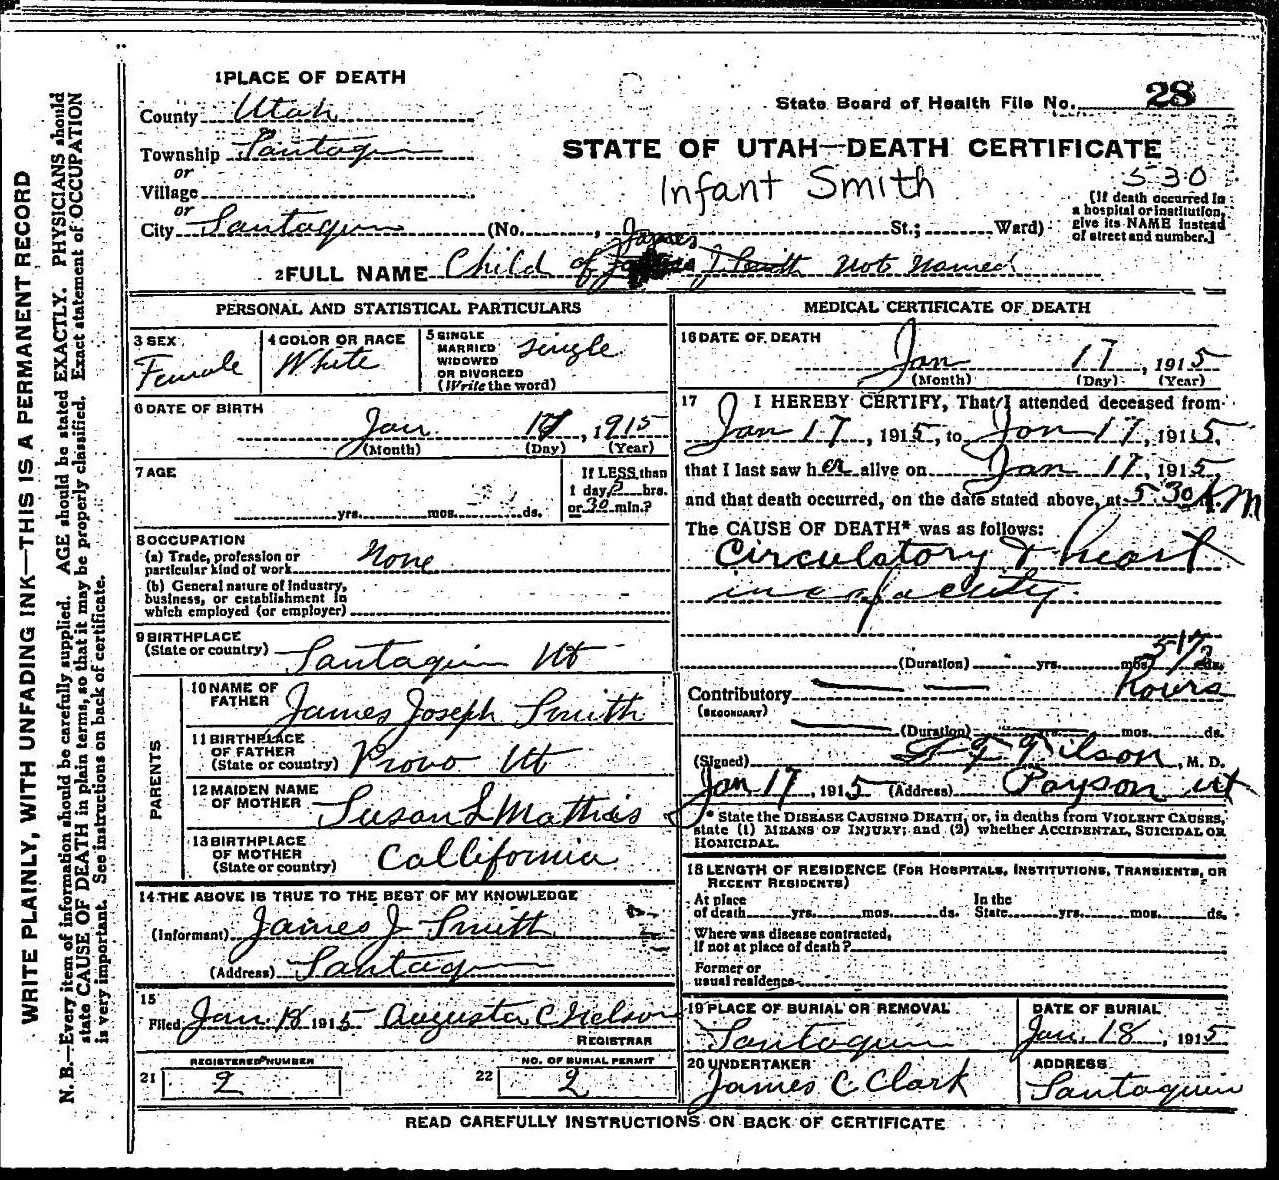 WRITE PLAINLY, WITH UNFADING INK—THIS IS A PERMANENT RECORD
N. B.—Every item of information should be carefully supplied. AGE should be stated EXACTLY. PHYSICIANS should
state CAUSE OF DEATH in plain terms, so that it may be properly classified. Exact statement of OCCUPATION
is very important. See instructions on back of certificate.
1 PLACE OF DEATH
County Utah
Township Santaquin
or
Village
or
City Santaquin (No. , St.; Ward)
State Board of Health File No. 28
STATE OF UTAH—DEATH CERTIFICATE
Infant Smith
530
[If death occurred in
a hospital or institution,
give its NAME instead
of street and number.]
James
2 FULL NAME Child of J. Smith not Named
PERSONAL AND STATISTICAL PARTICULARS
3 SEX Female
4 COLOR OR RACE White
5 SINGLE
MARRIED
WIDOWED
OR DIVORCED
(Write the word) single
6 DATE OF BIRTH
Jan. 17, 1915
(Month) (Day) (Year)
7 AGE
yrs. mos. ds.
If LESS than
1 day, hrs.
or 30 min.?
8 OCCUPATION
(a) Trade, profession or
particular kind of work None
(b) General nature of Industry,
business, or establishment in
which employed (or employer)
9 BIRTHPLACE
(State or country) Santaquin Ut
PARENTS
10 NAME OF
FATHER James Joseph Smith
11 BIRTHPLACE
OF FATHER
(State or country) Provo Ut
12 MAIDEN NAME
OF MOTHER Susan L Mathis
13 BIRTHPLACE
OF MOTHER
(State or country) Callifornia
14 THE ABOVE IS TRUE TO THE BEST OF MY KNOWLEDGE
(Informant) James J Smith
(Address) Santaquin
15
Filed Jan. 18 1915 Augusta C Nelson
REGISTRAR
REGISTERED NUMBER
21 2
NO. OF BURIAL PERMIT
22 2
MEDICAL CERTIFICATE OF DEATH
16 DATE OF DEATH
Jan 17, 1915
(Month) (Day) (Year)
17 I HEREBY CERTIFY, That I attended deceased from
Jan 17, 1915, to Jan 17, 1915.
that I last saw her alive on Jan 17, 1915
and that death occurred, on the date stated above, at 5:30 A.M
The CAUSE OF DEATH* was as follows:
Circulatory & heart
incapacity.
(Duration) yrs. mos. 5 1/2 ds.
hours
Contributory
(SECONDARY)
(Duration) yrs. mos. ds.
(Signed) Wilson, M. D.
Jan 17, 1915 (Address) Payson ut
* State the DISEASE CAUSING DEATH, or, in deaths from VIOLENT CAUSES,
state (1) MEANS OF INJURY; and (2) whether ACCIDENTAL, SUICIDAL OR
HOMICIDAL.
18 LENGTH OF RESIDENCE (FOR HOSPITALS, INSTITUTIONS, TRANSIENTS, OR
RECENT RESIDENTS)
At place In the
of death yrs. mos. ds. State yrs. mos. ds.
Where was disease contracted,
if not at place of death?
Former or
usual residence
19 PLACE OF BURIAL OR REMOVAL
Santaquin
DATE OF BURIAL
Jan. 18, 1915
20 UNDERTAKER
James C. Clark
ADDRESS
Santaquin
READ CAREFULLY INSTRUCTIONS ON BACK OF CERTIFICATE